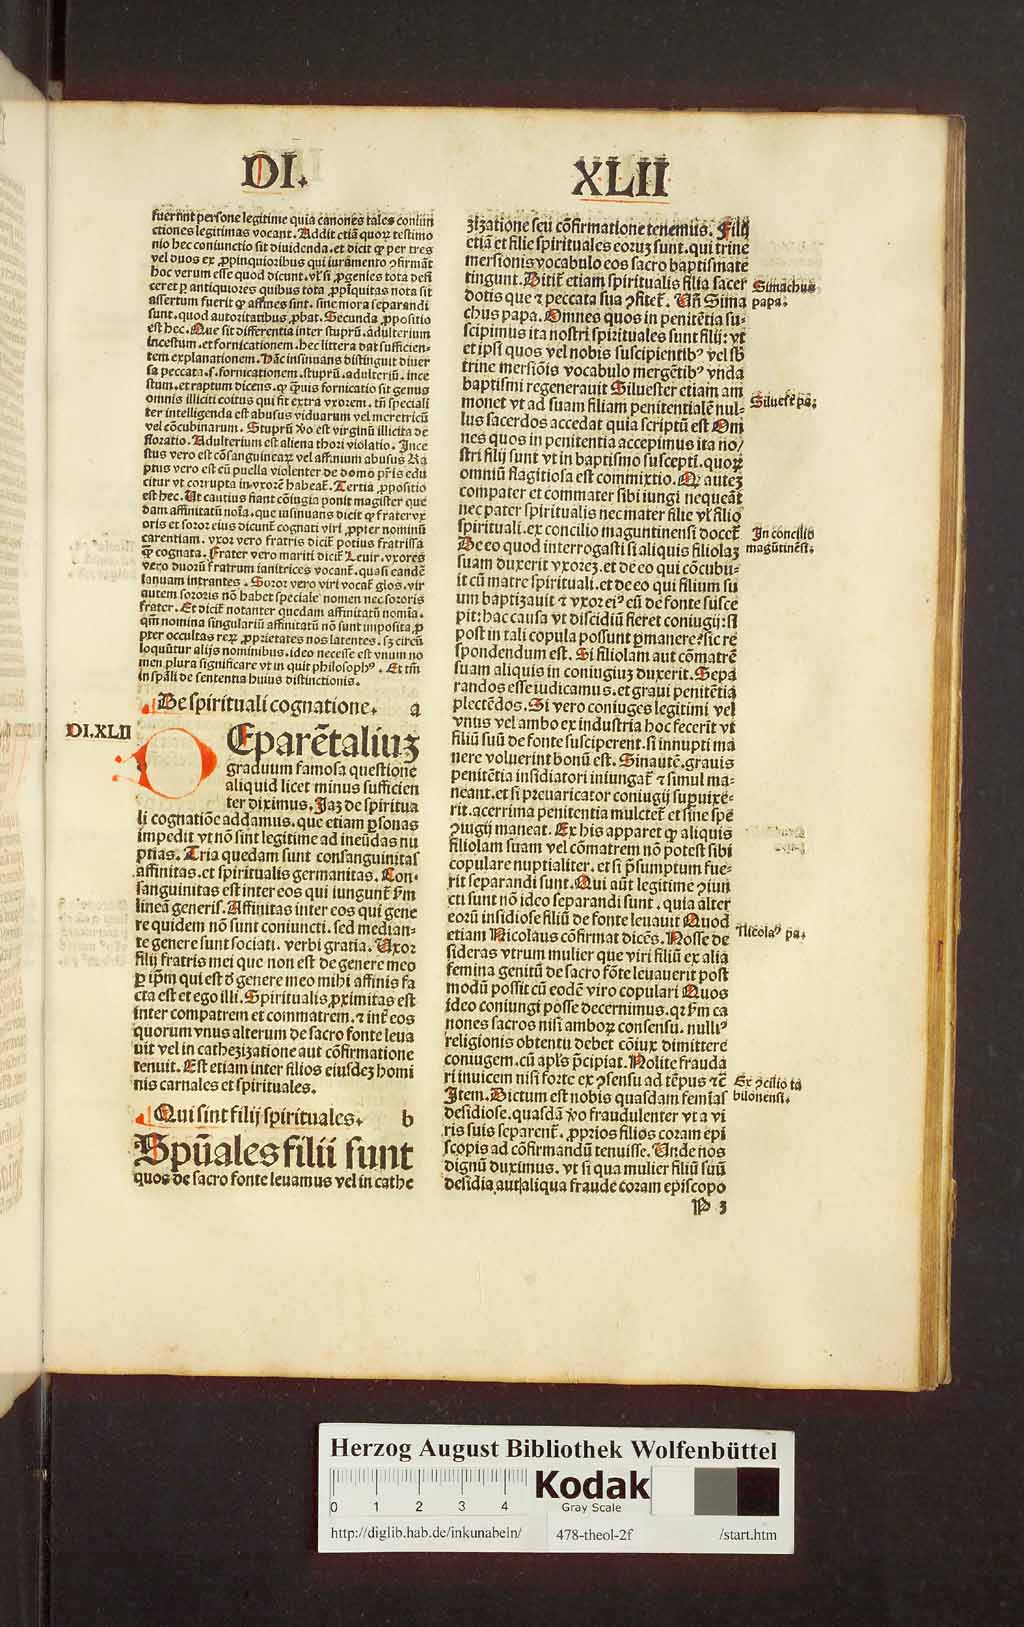 DI.
XLII
fuerint persone legitime quia canones tales coniun
ctiones legitimas vocant. Addit etiā quorꝝ testimo
nio hec coniunctio sit diuidenda. et dicit ꝙ per tres
vel duos ex ꝓpinquioribus qui iuramento ꝯfirmāt
hoc verum esse quod dicunt. vl' si ꝓgenies tota defi
ceret ꝑ antiquiores quibus tota ꝓpīquitas nota sit
assertum fuerit ꝙ affines sint. sine mora separandi
sunt. quod autoritatibus ꝓbat. Secunda ꝓpositio
est hec. Que sit differentia inter stuprū. adulterium
incestum. et fornicationem. hec littera dat sufficien-
tem explanationem. Hāc insinuans distinguit diuer
sa peccata. s. fornicationem. stuprū. adulteriū. ince
stum. et raptum dicens. ꝙ q̄uis fornicatio sit genus
omnis illiciti coitus qui fit extra vxorem. tn̄ speciali
ter intelligenda est abusus viduarum vel meretricū
vel cōcubinarum. Stuprū ṽo est virginū illicita de
floratio. Adulterium est aliena thori violatio. Ince
stus vero est cōsanguineaꝝ vel affinium abusus Ra
ptus vero est cū puella violenter de domo pr̄is edu
citur vt corrupta in vxorē habeat̄. Tertia ꝓpositio
est hec. Ut cautius fiant cōiugia ponit magister que
dam affinitatū noīa. que insinuans dicit ꝙ frater vx
oris et soror eius dicunt̄ cognati viri ꝓpter nominū
carentiam. vxor vero fratris dicit̄ potius fratrissa
q̄ꝫ cognata. Frater vero mariti dicit̄ Leuir. vxores
vero duorū fratrum ianitrices vocant̄. quasi eandē
ianuam intrantes. Soror vero viri vocat̄ glos. vir
autem sororis nō habet speciale nomen nec sororis
frater. Et dicit̄ notanter quedam affinitatū noīa.
qm̄ nomina singulariū affinitatū nō sunt imposita ꝓ
pter occultas reꝝ ꝓprietates nos latentes. sꝫ circū
loquūtur alijs nominibus. ideo necesse est vnum no
men plura significare vt in quit philosoph⁹. Et tm̄
in sp̄ali de sententia huius distinctionis.
De spirituali cognatione. a
DI.XLII
Eparētaliuꝫ
graduum famosa questione
aliquid licet minus sufficien
ter diximus. Iaꝫ de spiritua
li cognatiōe addamus. que etiam ꝑsonas
impedit vt nō sint legitime ad ineūdas nu
ptias. Tria quedam sunt consanguinitas
affinitas. et spiritualis germanitas. Con-
sanguinitas est inter eos qui iungunt̄ ẜm
lineā generis. Affinitas inter eos qui gene
re quidem nō sunt coniuncti. sed median-
te genere sunt sociati. verbi gratia. Uxor
filij fratris mei que non est de genere meo
ꝑ ip̄m qui est ð genere meo mihi affinis fa
cta est et ego illi. Spiritualis ꝓximitas est
inter compatrem et commatrem. ⁊ int̄ eos
quorum vnus alterum de sacro fonte leua
uit vel in cathezizatione aut cōfirmatione
tenuit. Est etiam inter filios eiusdeꝫ homi
nis carnales et spirituales.
Qui sint filij spirituales. b
Spūales filii sunt
quos de sacro fonte leuamus vel in cathe
zizatione seu cōfirmatione tenemus. Filij
etiā et filie spirituales eoruꝫ sunt. qui trine
mersionis vocabulo eos sacro baptismate
tingunt. Dicit̄ etiam spiritualis filia sacer
dotis que ⁊ peccata sua ꝯfitet̄. Uñ Sima
chus papa. Omnes quos in penitētia su-
scipimus ita nostri spirituales sunt filij: vt
et ipsi quos vel nobis suscipientib⁹ vel sb̄
trine mersiōis vocabulo mergētib⁹ vnda
baptismi regenerauit Siluester etiam am
monet vt ad suam filiam penitentialē nul-
lus sacerdos accedat quia scriptū est Om
nes quos in penitentia accepimus ita no/
stri filij sunt vt in baptismo suscepti. quoꝝ
omniū flagitiosa est commixtio. Q̄ auteꝫ
compater et commater sibi iungi nequeāt
nec pater spiritualis nec mater filie vl' filio
spirituali. ex concilio maguntinensi docet̄
De eo quod interrogasti si aliquis filiolaꝫ
suam duxerit vxoreꝫ. et de eo qui cōcubu-
it cū matre spirituali. et de eo qui filium su
um baptizauit ⁊ vxor ei⁹ eū de fonte susce
pit: hac causa vt discidiū fieret coniugij: si
post in tali copula possunt ꝑmanere? sic re
spondendum est. Si filiolam aut cōmatrē
suam aliquis in coniugiuꝫ duxerit. Sepa
randos esse iudicamus. et graui penitētia
plectēdos. Si vero coniuges legitimi vel
vnus vel ambo ex industria hoc fecerit vt
filiū suū de fonte susciperent. si innupti ma
nere voluerint bonū est. Sin autē. grauis
penitētia insidiatori iniungat̄ ⁊ simul ma-
neant. et si p̄euaricator coniugij suꝑuixe-
rit. acerrima penitentia mulctet̄ et sine spe
ꝯiugij maneat. Ex his apparet ꝙ aliquis
filiolam suam vel cōmatrem nō potest sibi
copulare nuptialiter. et si p̄sumptum fue-
rit separandi sunt. Qui aūt legitime ꝯiun
cti sunt nō ideo separandi sunt. quia alter
eorū insidiose filiū de fonte leuauit Quod
etiam Nicolaus cōfirmat dicēs. Nosse de
sideras vtrum mulier que viri filiū ex alia
femina genitū de sacro fōte leuauerit post
modū possit cū eodē viro copulari Quos
ideo coniungi posse decernimus. qꝛ ẜm ca
nones sacros nisi amboꝝ consensu. null⁹
religionis obtentu debet cōiux dimittere
coniugem. cū apl̄s p̄cipiat. Nolite frauda
ri inuicem nisi forte ex ꝯsensu ad tēpus ⁊c̄
Item. Dictum est nobis quasdam femīas
desidiose. quasdā ṽo fraudulenter vt a vi
ris suis separent̄. ꝓprios filios coram epi
scopis ad cōfirmandū tenuisse. Unde nos
dignū duximus. vt si qua mulier filiū suū
desidia aut aliqua fraude coram episcopo
P 3
Simachus
papa.
Siluester pa.
In concilio
magūtinēsi.
Nicola⁹ pa.
Ex ꝯcilio ca
bilonensi.
Herzog August Bibliothek Wolfenbüttel
0 1 2 3 4
Kodak
Gray Scale
http://diglib.hab.de/inkunabeln/ 478-theol-2f /start.htm